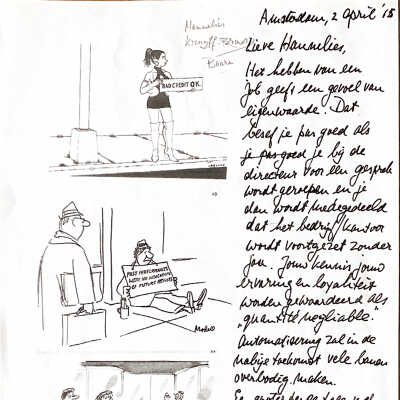 Amsterdam, 2 april '15
Lieve Hannelies,
Hannelies
BAD CREDIT O.K.
Het hebben van een
job geeft een gevoel van
eigenwaarde. Dat
besef je pas goed als
je pas goed je bij de
directeur voor een gesprek
wordt geroepen en je
dan wordt medegedeeld
dat het bedrijf/kantoor
wordt voortgezet zonder
jou. Jouw kennis, jouw
ervaring en loyaliteit
worden gewaardeerd als
"quantité negliable".
Automatisering zal in de
nabije toekomst vele banen
overbodig maken.
PAST PERFORMANCE
WAS NO INDICATION
OF FUTURE RESULTS